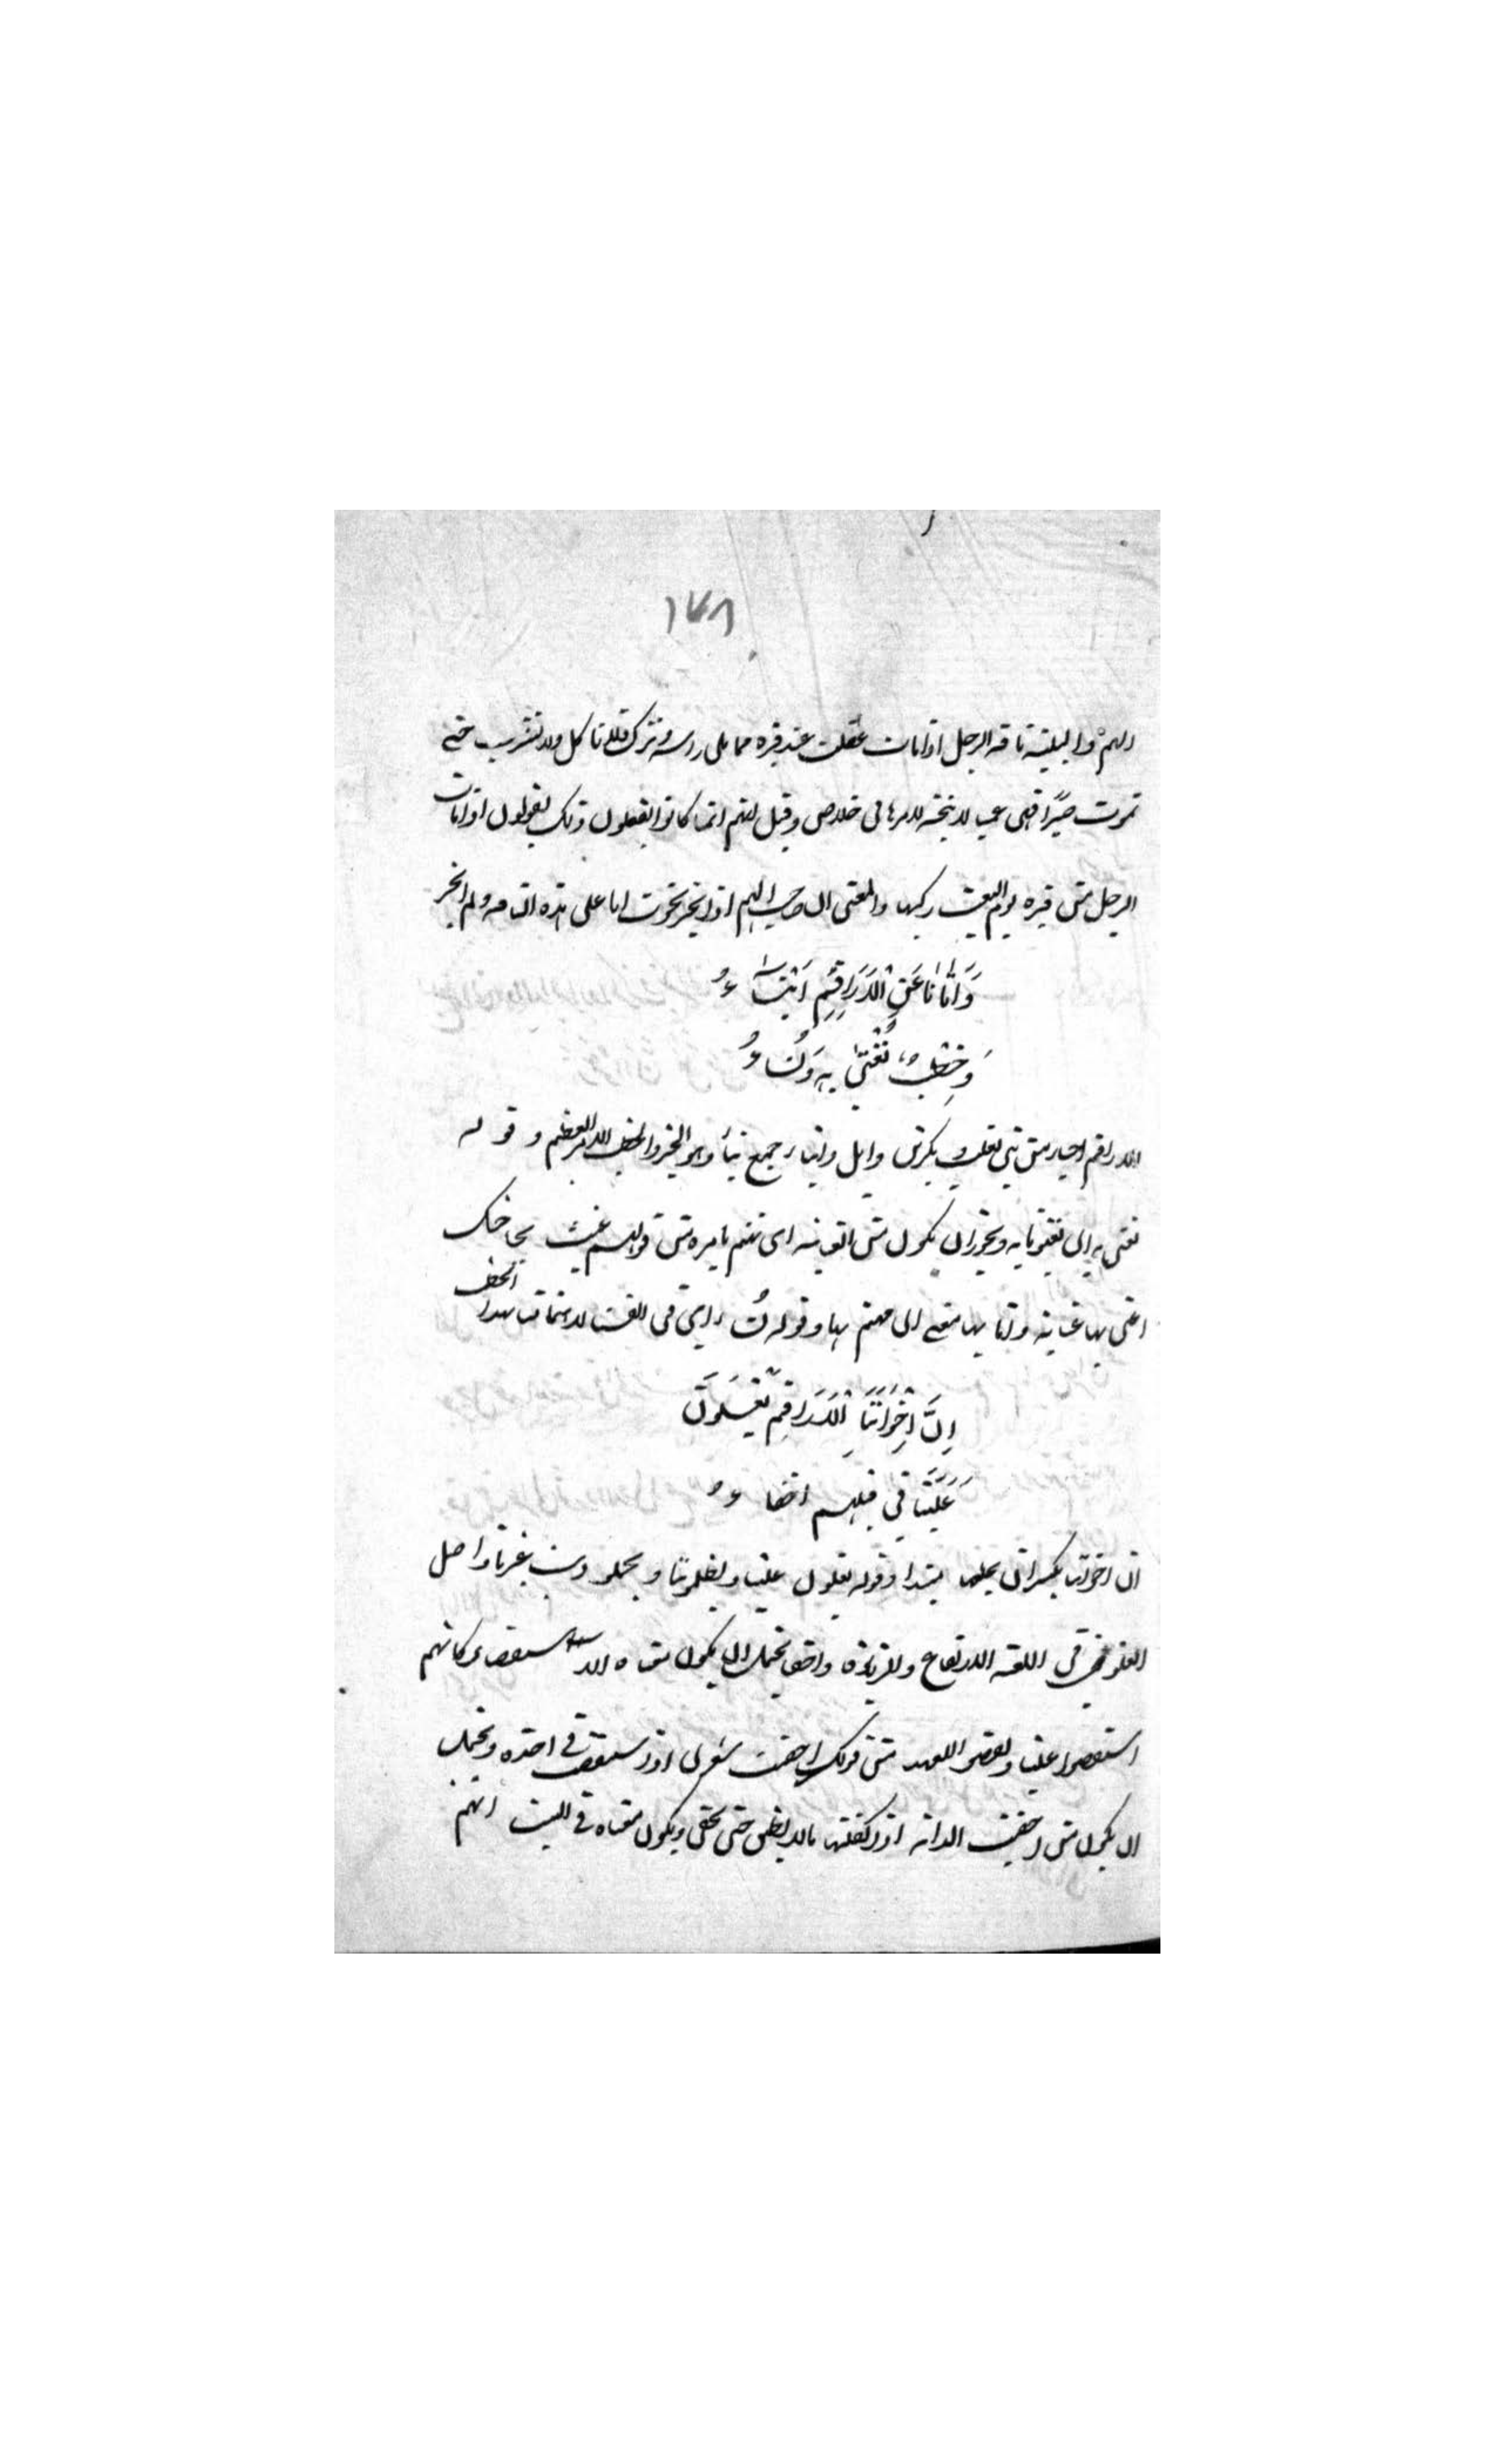 ١٧٨
الهم والبلية ناقة الرجل اذا مات عقلت عند قبره مما يلي راسه وتترك فلا تاكل ولا تشرب حتى
تموت صبرا فهي عميا لا يتجه لامرها في خلاص وقيل انهم انما كانوا يفعلون ذلك يقولون اذا مات
الرجل من قبره يوم البعث ركبها والمعنى ان صاحب الهم اذا تخير نجوت انا على هذه الناقة ولم اتخير
وَاَتَانَا عَنِ الْاَرَاقِمِ اَنْبَاءٌ
وَخَطْبٌ نُعْنَى بِهِ وَنُسَاءُ
الاراقم احياء من بني تغلب وبكر بن وايل وانباء جمع نبأ وهو الخبر والخطب الامر العظيم وقوله
نعنى به اي ويجوز ان يكون من العناية اي نهتم بامره من قولهم عنيت بحاجتك
اعنى بها عناية وانا بها معنى اي مهتم بها وقوله نُساء اي في لهذا الخطب
اِنَّ اِخْوَانَنَا الْاَرَاقِمَ يَغْلُونَ
عَلَيْنَا فِي قِيلِهِم اخفاءُ
ان اخواننا بكسر ان يجعلها مبتدا وقوله يغلون علينا ويظلموننا ويحملوننا ذنب غيرنا واصل
الغلو في اللغة الارتفاع والزيادة واخفا يحتمل ان يكون معناه الاستقصاء كانهم
استقصوا علينا ونقضوا العهد من قولك احفيت شعري اذا استقصيت في اخذه ويحتمل
ان يكون من احفيت الدابة اذا كلفتها ما لا تطيق حتى تحفى ويكون معناه في البيت انهم